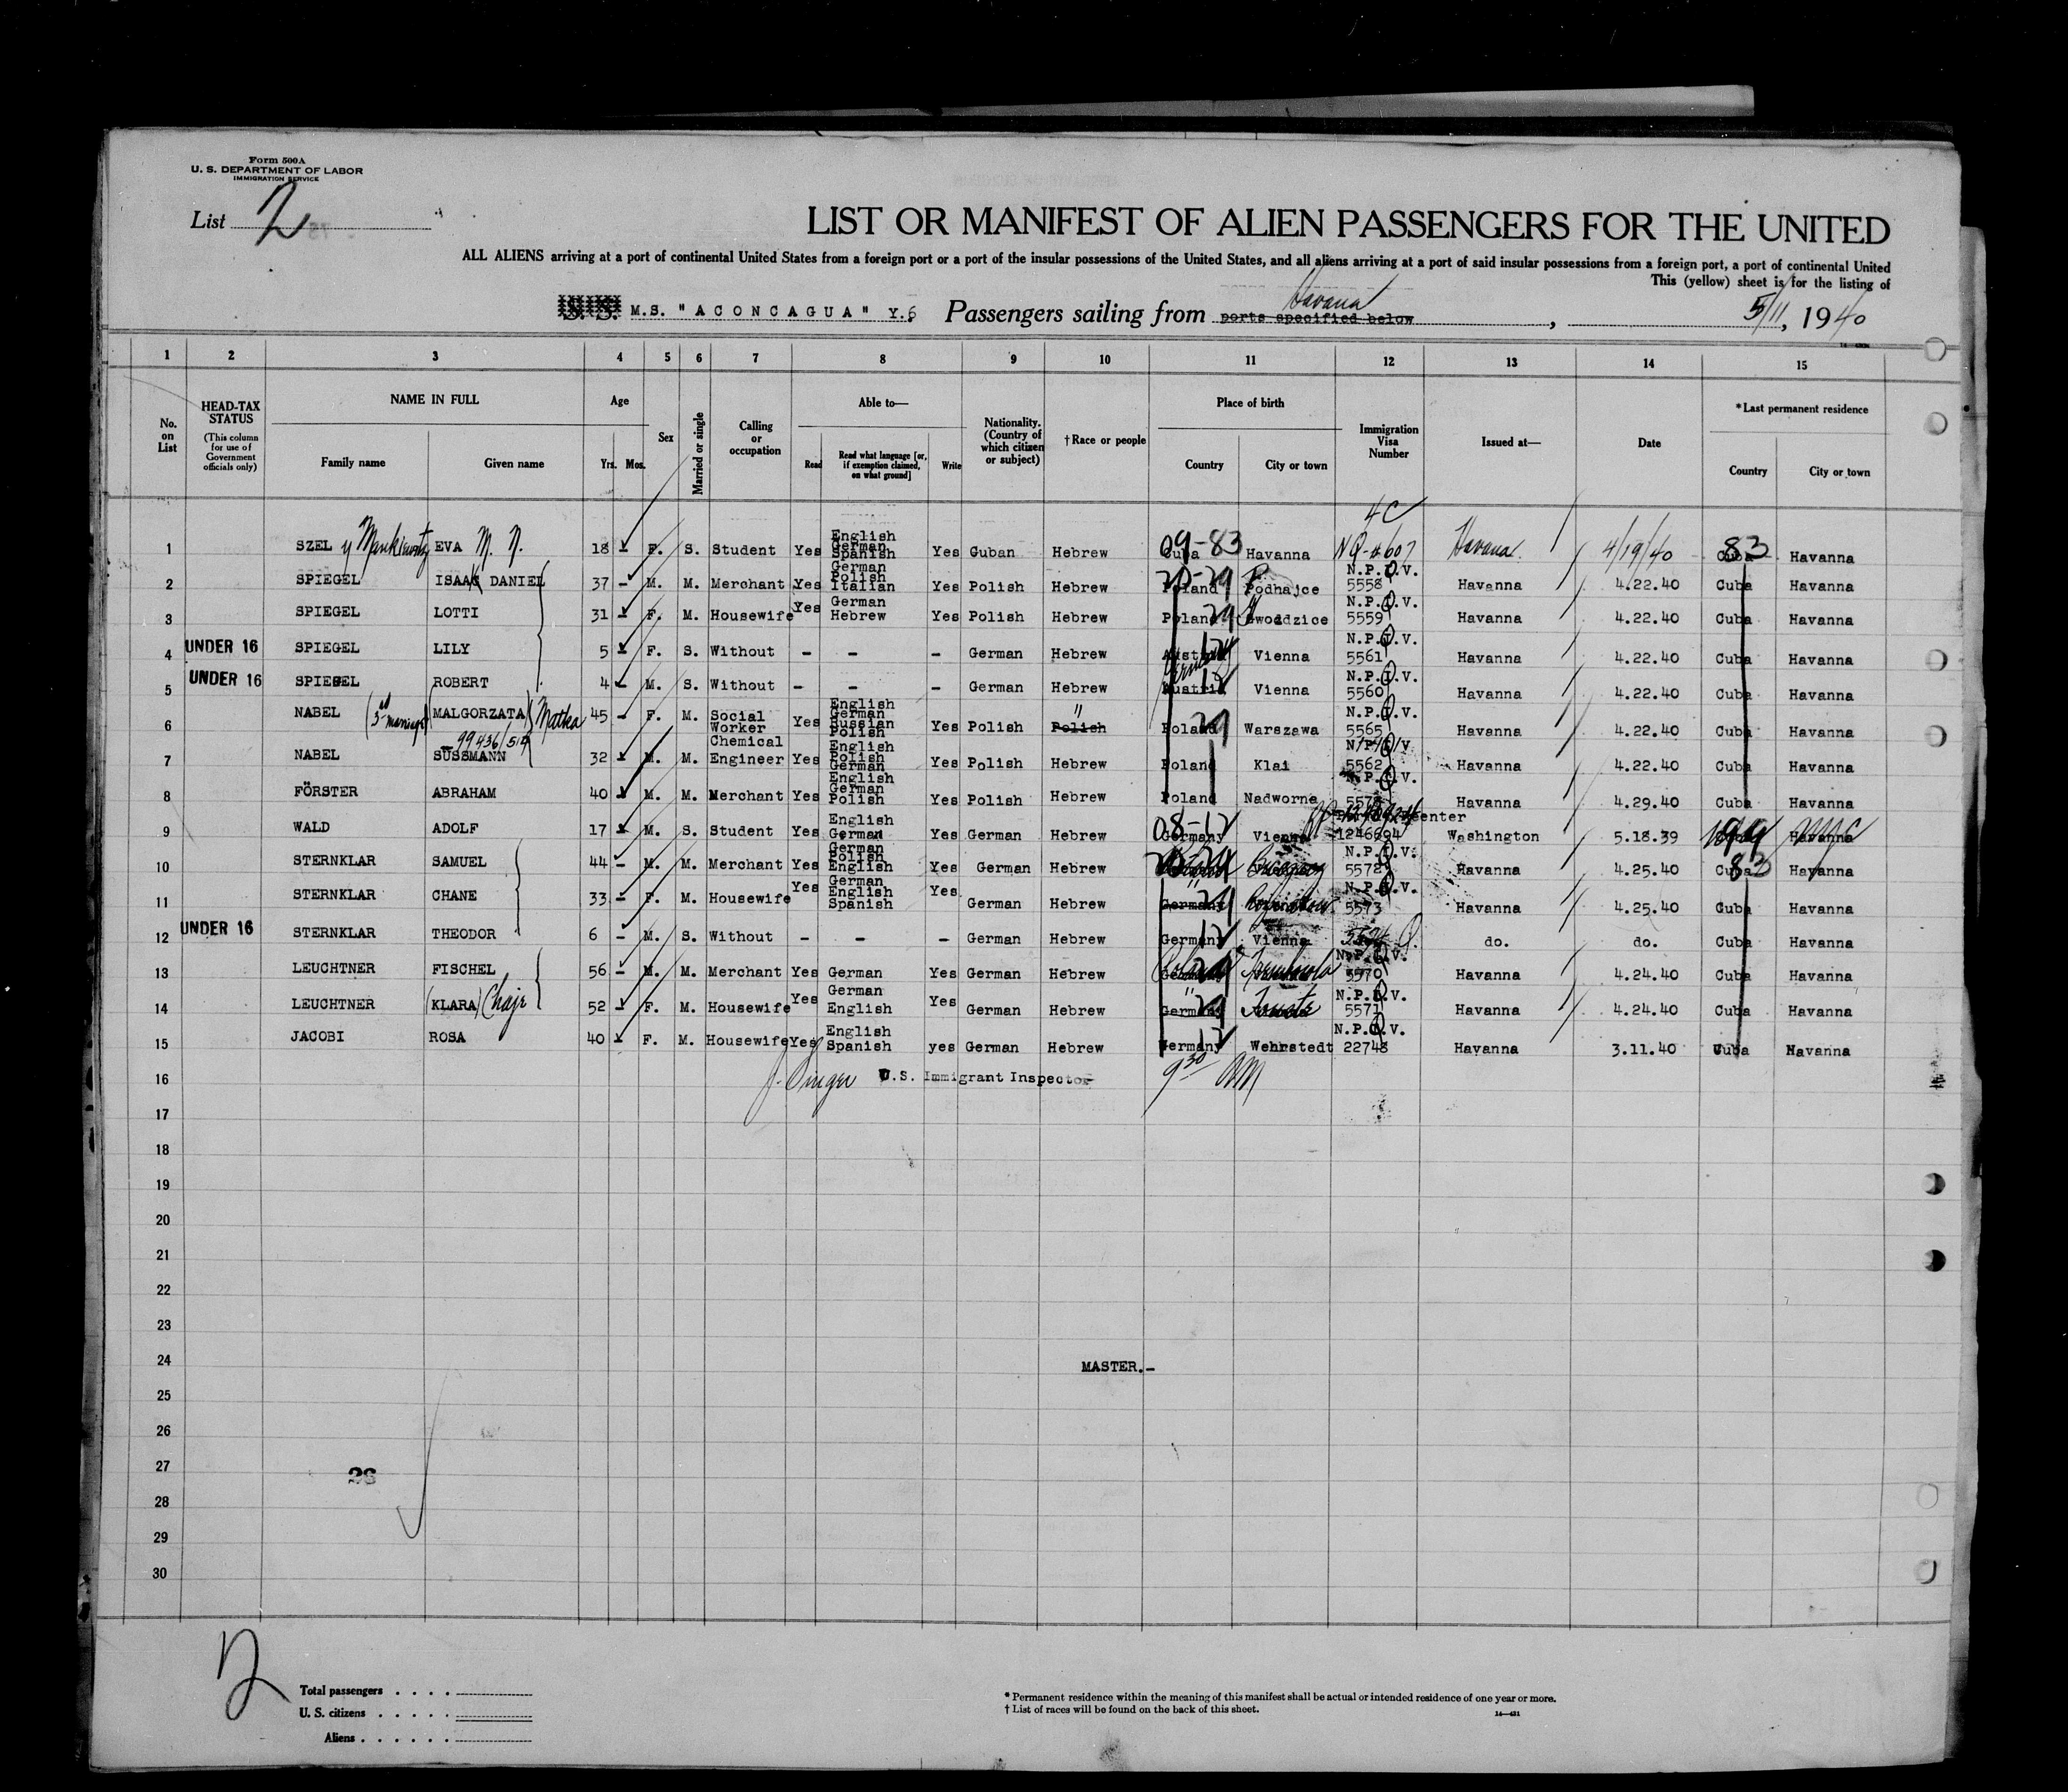 Form 500A
U. S. DEPARTMENT OF LABOR
IMMIGRATION SERVICE
List 2
LIST OR MANIFEST OF ALIEN PASSENGERS FOR THE UNITED
ALL ALIENS arriving at a port of continental United States from a foreign port or a port of the insular possessions of the United States, and all aliens arriving at a port of said insular possessions from a foreign port, a port of continental United
This (yellow) sheet is for the listing of
S. S. M.S. "ACONCAGUA" Y.6 Passengers sailing from ports specified below Havana , 5/11, 1940
1 2 3 4 5 6 7 8 9 10 11 12 13 14 15
No. on List
HEAD-TAX STATUS (This column for use of Government officials only)
NAME IN FULL Family name Given name
Age Yrs. Mos.
Sex
Married or single
Calling or occupation
Able to— Read Read what language [or, if exemption claimed, on what ground] Write
Nationality. (Country of which citizen or subject)
†Race or people
Place of birth Country City or town
Immigration Visa Number
Issued at—
Date
*Last permanent residence Country City or town
4C
1 SZEL y Mankiewitz EVA M. N. 18 - F. S. Student Yes English German Spanish Yes Cuban Hebrew Cuba 09-83 Havanna NQ-4607 Havana 4/19/40 Cuba 83 Havanna
2 SPIEGEL ISAAK DANIEL 37 - M. M. Merchant Yes German Polish Italian Yes Polish Hebrew Poland Podhajce N.P.Q.V. 5558 Havanna 4.22.40 Cuba Havanna
3 SPIEGEL LOTTI 31 - F. M. Housewife Yes German Hebrew Yes Polish Hebrew Poland 29 Gwoddzice N.P.Q.V. 5559 Havanna 4.22.40 Cuba Havanna
4 UNDER 16 SPIEGEL LILY 5 - F. S. Without - - - German Hebrew Austria Vienna N.P.Q.V. 5561 Havanna 4.22.40 Cuba Havanna
5 UNDER 16 SPIEGEL ROBERT 4 - M. S. Without - - - German Hebrew Austria Germany 12 Vienna N.P.Q.V. 5560 Havanna 4.22.40 Cuba Havanna
6 NABEL (3rd marriage) (MALGORZATA) Matka 45 - F. M. Social Worker Yes English German Russian Polish Yes Polish Polish " Poland 29 Warszawa N.P.Q.V. 5565 Havanna 4.22.40 Cuba Havanna
99436/514
7 NABEL SÜSSMANN 32 - M. M. Chemical Engineer Yes English Polish German Yes Polish Hebrew Poland Klai N.P.Q.V. 5562 Havanna 4.22.40 Cuba Havanna
8 FÖRSTER ABRAHAM 40 - M. M. Merchant Yes English German Polish Yes Polish Hebrew Poland Nadworne N.P.Q.V. Havanna 4.29.40 Cuba Havanna
9 WALD ADOLF 17 - M. S. Student Yes English German Yes German Hebrew Germany 08-12 Vienna 1246694 Washington 5.18.39 Havanna NYC
10 STERNKLAR SAMUEL 44 - M. M. Merchant Yes German Polish English Yes German Hebrew N.P.Q.V. 5572 Havanna 4.25.40 Cuba 83 Havanna
11 STERNKLAR CHANE 33 - F. M. Housewife Yes German English Spanish Yes German Hebrew Germany " N.P.Q.V. 5573 Havanna 4.25.40 Cuba Havanna
12 UNDER 16 STERNKLAR THEODOR 6 - M. S. Without - - - German Hebrew Germany 12 Vienna 5574 Q. do. do. Cuba Havanna
13 LEUCHTNER FISCHEL 56 - M. M. Merchant Yes German Yes German Hebrew Germany Poland Trembowla N.P.Q.V. 5570 Havanna 4.24.40 Cuba Havanna
14 LEUCHTNER (KLARA) Chaje 52 - F. M. Housewife Yes German English Yes German Hebrew Germany " 29 N.P.Q.V. 5571 Havanna 4.24.40 Cuba Havanna
15 JACOBI ROSA 40 - F. M. Housewife Yes English Spanish yes German Hebrew Germany 12 Wehrstedt N.P.Q.V. 22748 Havanna 3.11.40 Cuba Havanna
16 J. Singer U.S. Immigrant Inspector 9 30 AM
17
18
19
20
21
22
23
24 MASTER.-
25
26
27 28
28
29
30
2
Total passengers . . . .
U. S. citizens . . . . .
Aliens . . . . . .
* Permanent residence within the meaning of this manifest shall be actual or intended residence of one year or more.
† List of races will be found on the back of this sheet.
14—431